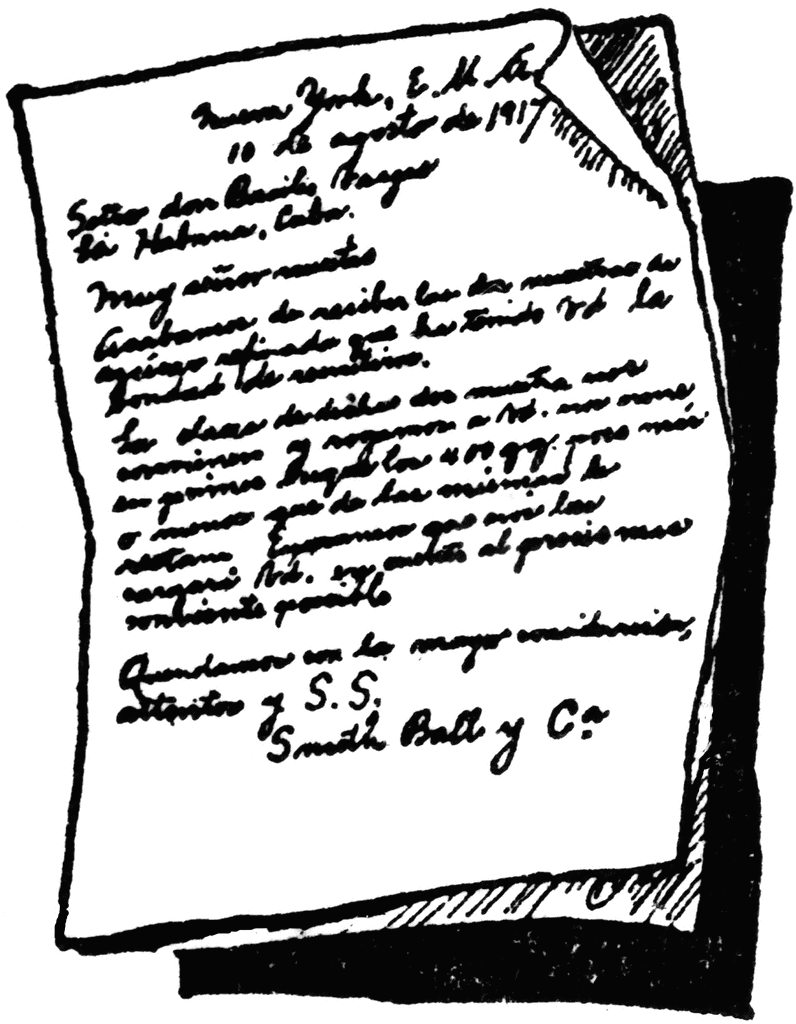 Nueva York, E. U. A.
10 de agosto de 1917
Señor don Basilio Vargas
La Habana, Cuba.
Muy señor nuestro
Acabamos de recibir las dos muestras de
azúcar refinada que ha tenido Vd la
bondad de remitirnos.
La clase de dichas dos muestra nos
conviene y rogamos a Vd. nos
en primer los 400 qq. poco más
o menos que de las mismas le
restan. Esperamos que nos los
cargará Vd. en cuenta al precio mas
conveniente posible
Quedamos con la mayor consideración,
attentos y S. S.
Smith Ball y Cª